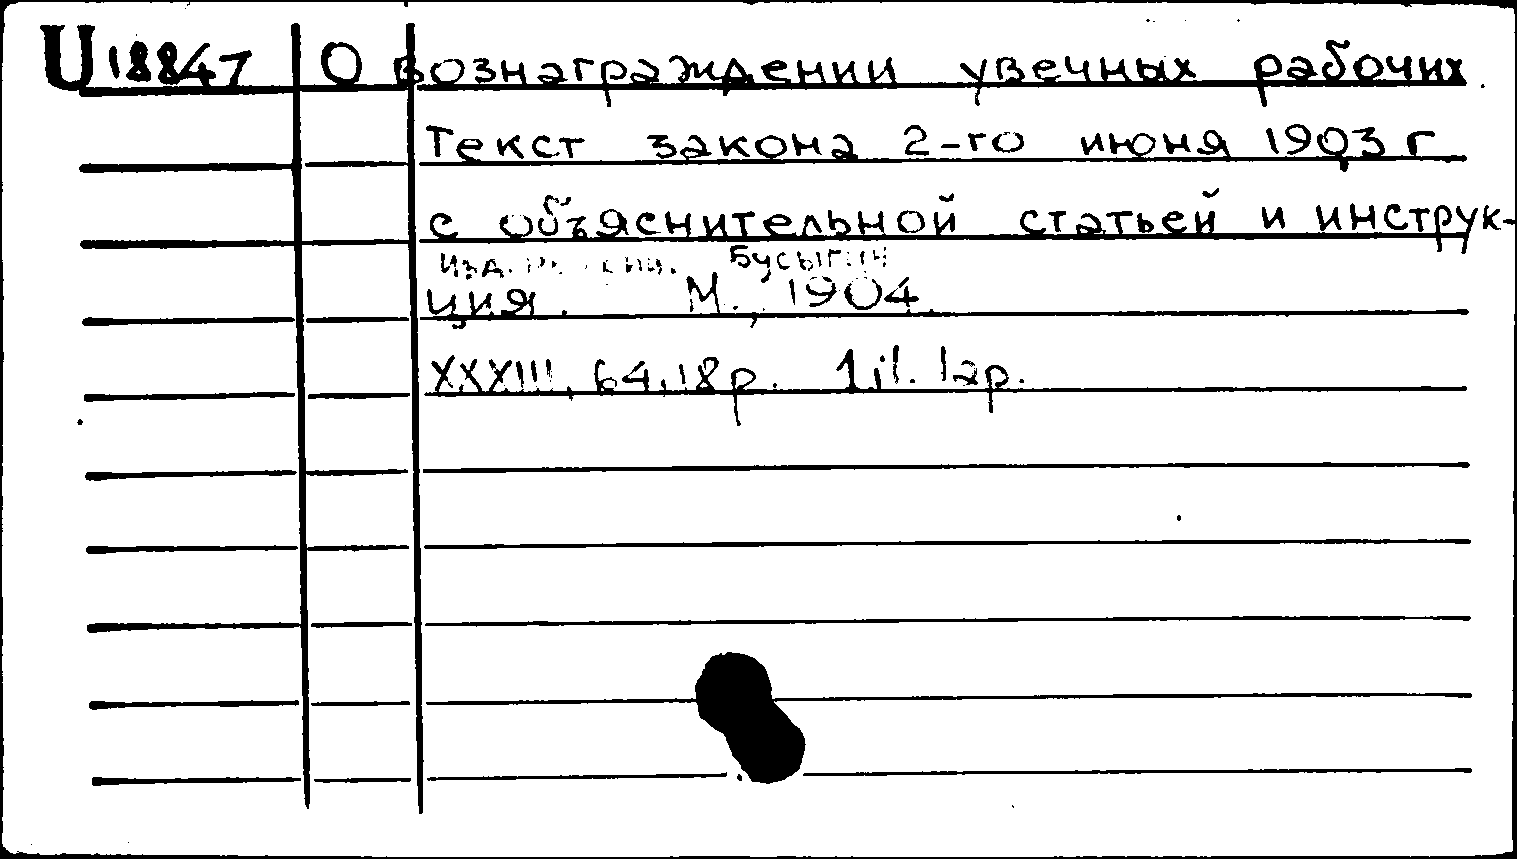 U 18847 О вознаграждении увечных рабочих
Текст закона 2-го июня 1903 г
с объяснительной статьей и инструк-
Изд. Бусыгин
ция. М., 1904.
XXXIII, 64, 18 p. 1 il. lap.